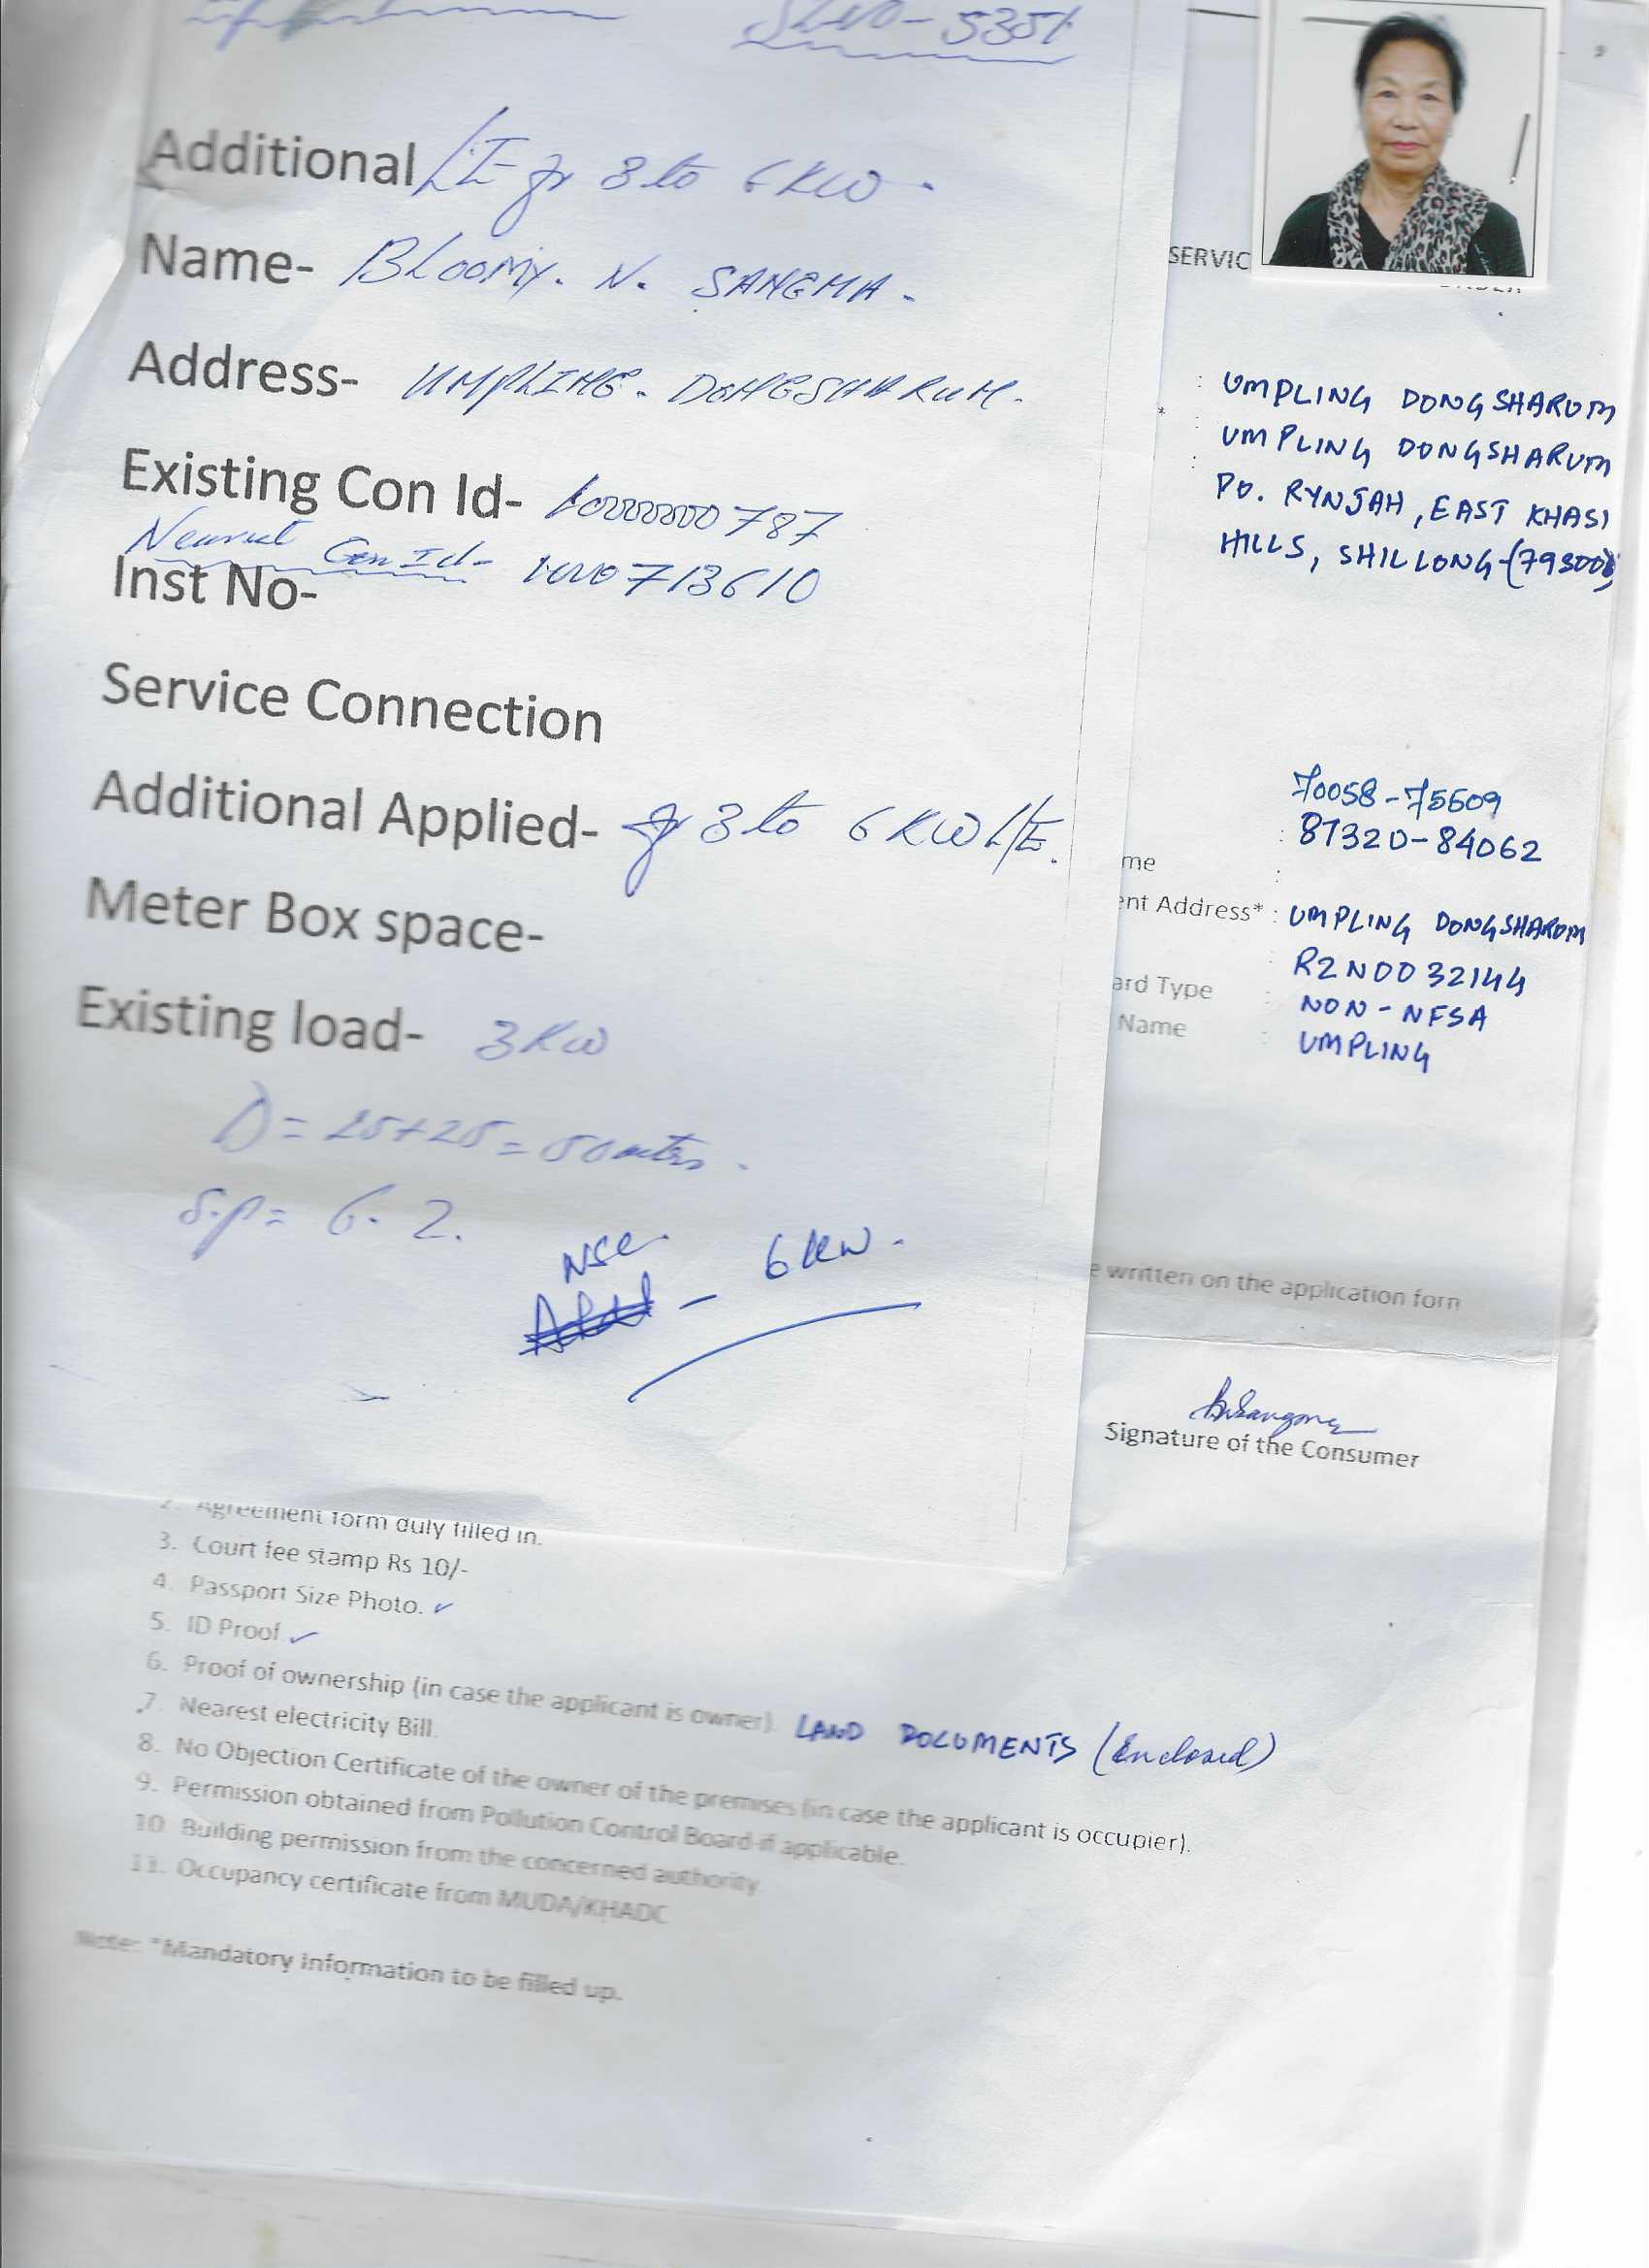 5351
Additional L/E fr 3 to 6 KW.
Name- BLOOMY. N. SANGMA.
Address- UMPLING. DONGSHARUM.
Existing Con Id- 787
Nearest Con Id- 713610
Inst No-
Service Connection
Additional Applied- fr 3 to 6 KW L/E.
Meter Box space-
Existing load- 3KW
D = 25+25 = 50 mtrs.
S.P = 6. 2.
NSC
- 6 KW.
SERVIC
: UMPLING DONGSHARUM
* : UMPLING DONGSHARUM
: PO. RYNJAH, EAST KHASI
HILLS, SHILLONG-(79300
70058-75609
: 87320-84062
me :
ent Address* : UMPLING DONGSHARUM
: R2N0032144
ard Type : NON-NFSA
Name : UMPLING
e written on the application forn
Signature of the Consumer
2. Agreement form duly filled in.
3. Court fee stamp Rs 10/-
4. Passport Size Photo. ✓
5. ID Proof ✓
6. Proof of ownership (in case the applicant is owner). LAND DOCUMENTS (Enclosed)
7. Nearest electricity Bill.
8. No Objection Certificate of the owner of the premises (in case the applicant is occupier).
9. Permission obtained from Pollution Control Board-if applicable.
10. Building permission from the concerned authority.
11. Occupancy certificate from MUDA/KHADC
Note: *Mandatory Information to be filled up.